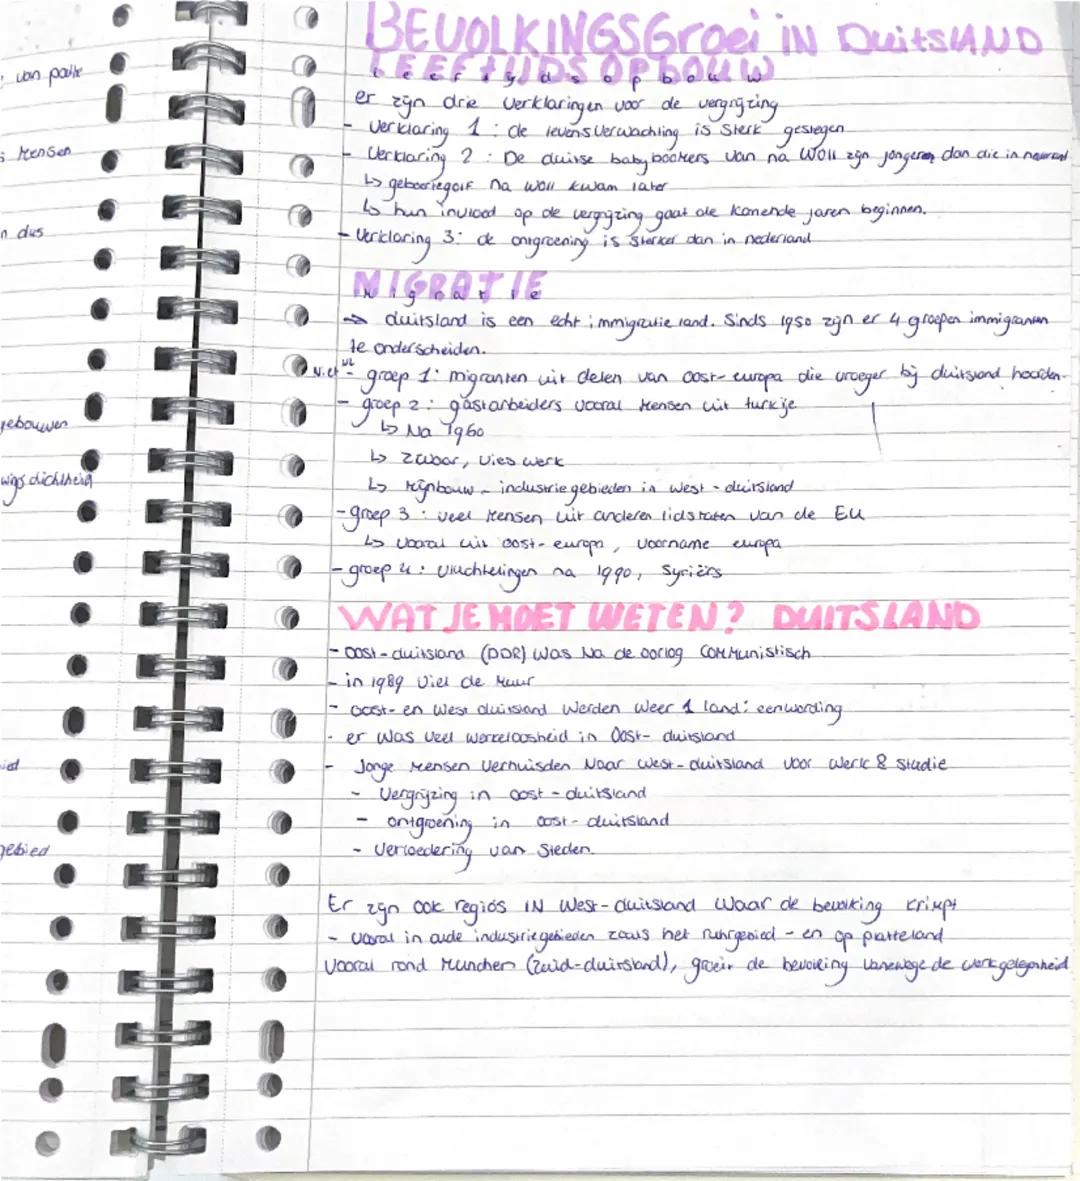 BEVOLKINGSGroei iN DuitslAND
LEEFTIJDSOPBOUW
er zijn drie verklaringen voor de vergrijzing
- Verklaring 1 : de levensverwachting is sterk gestegen
- Verklaring 2 : De duitse babyboomers van na WOII zijn jongeren dan die in
↳ geboortegolf na WOII kwam later
↳ hun invloed op de vergrijzing gaat de komende jaren beginnen.
- Verklaring 3: de ontgroening is sterker dan in nederland
MIGRATIE
→ duitsland is een echt immigratie land. Sinds 1950 zijn er 4 groepen immigranten
te onderscheiden.
- groep 1: migranten uit delen van oost-europa die vroeger bij duitsland hoorden.
- groep 2 : gastarbeiders vooral mensen uit turkije
↳ Na 1960
↳ zwaar, vies werk
↳ mijnbouw - industriegebieden in west-duitsland
- groep 3 : veel mensen uit anderen lidstaten van de EU
↳ vooral uit oost-europa, voorname europa
- groep 4 : vluchtelingen na 1990, Syriërs
WAT JE MOET WETEN? DUITSLAND
- oost-duitsland (DDR) was Na de oorlog communistisch
- in 1989 viel de muur
- oost- en west duitsland werden weer 1 land: eenwording
- er was veel werkeloosheid in Oost-duitsland
- Jonge mensen verhuisden Naar west-duitsland voor werk & studie
- Vergrijzing in oost-duitsland
- ontgroening in oost-duitsland
- verloedering van steden.
Er zijn ook regios IN West-duitsland waar de bevolking krimpt
- vooral in oude industriegebieden zoals het ruhrgebied - en op platteland
Vooral rond munchen (zuid-duitsland), groeit de bevolking vanwege de werkgelegenheid